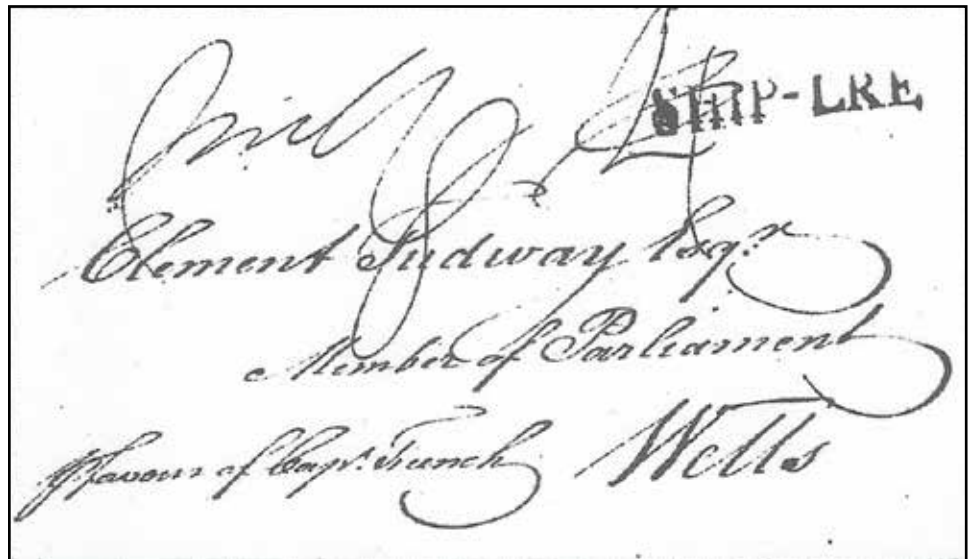 SHIP-LRE
Clement Tudway Esqr.
Member of Parliament
Wells
favour of Capt. French